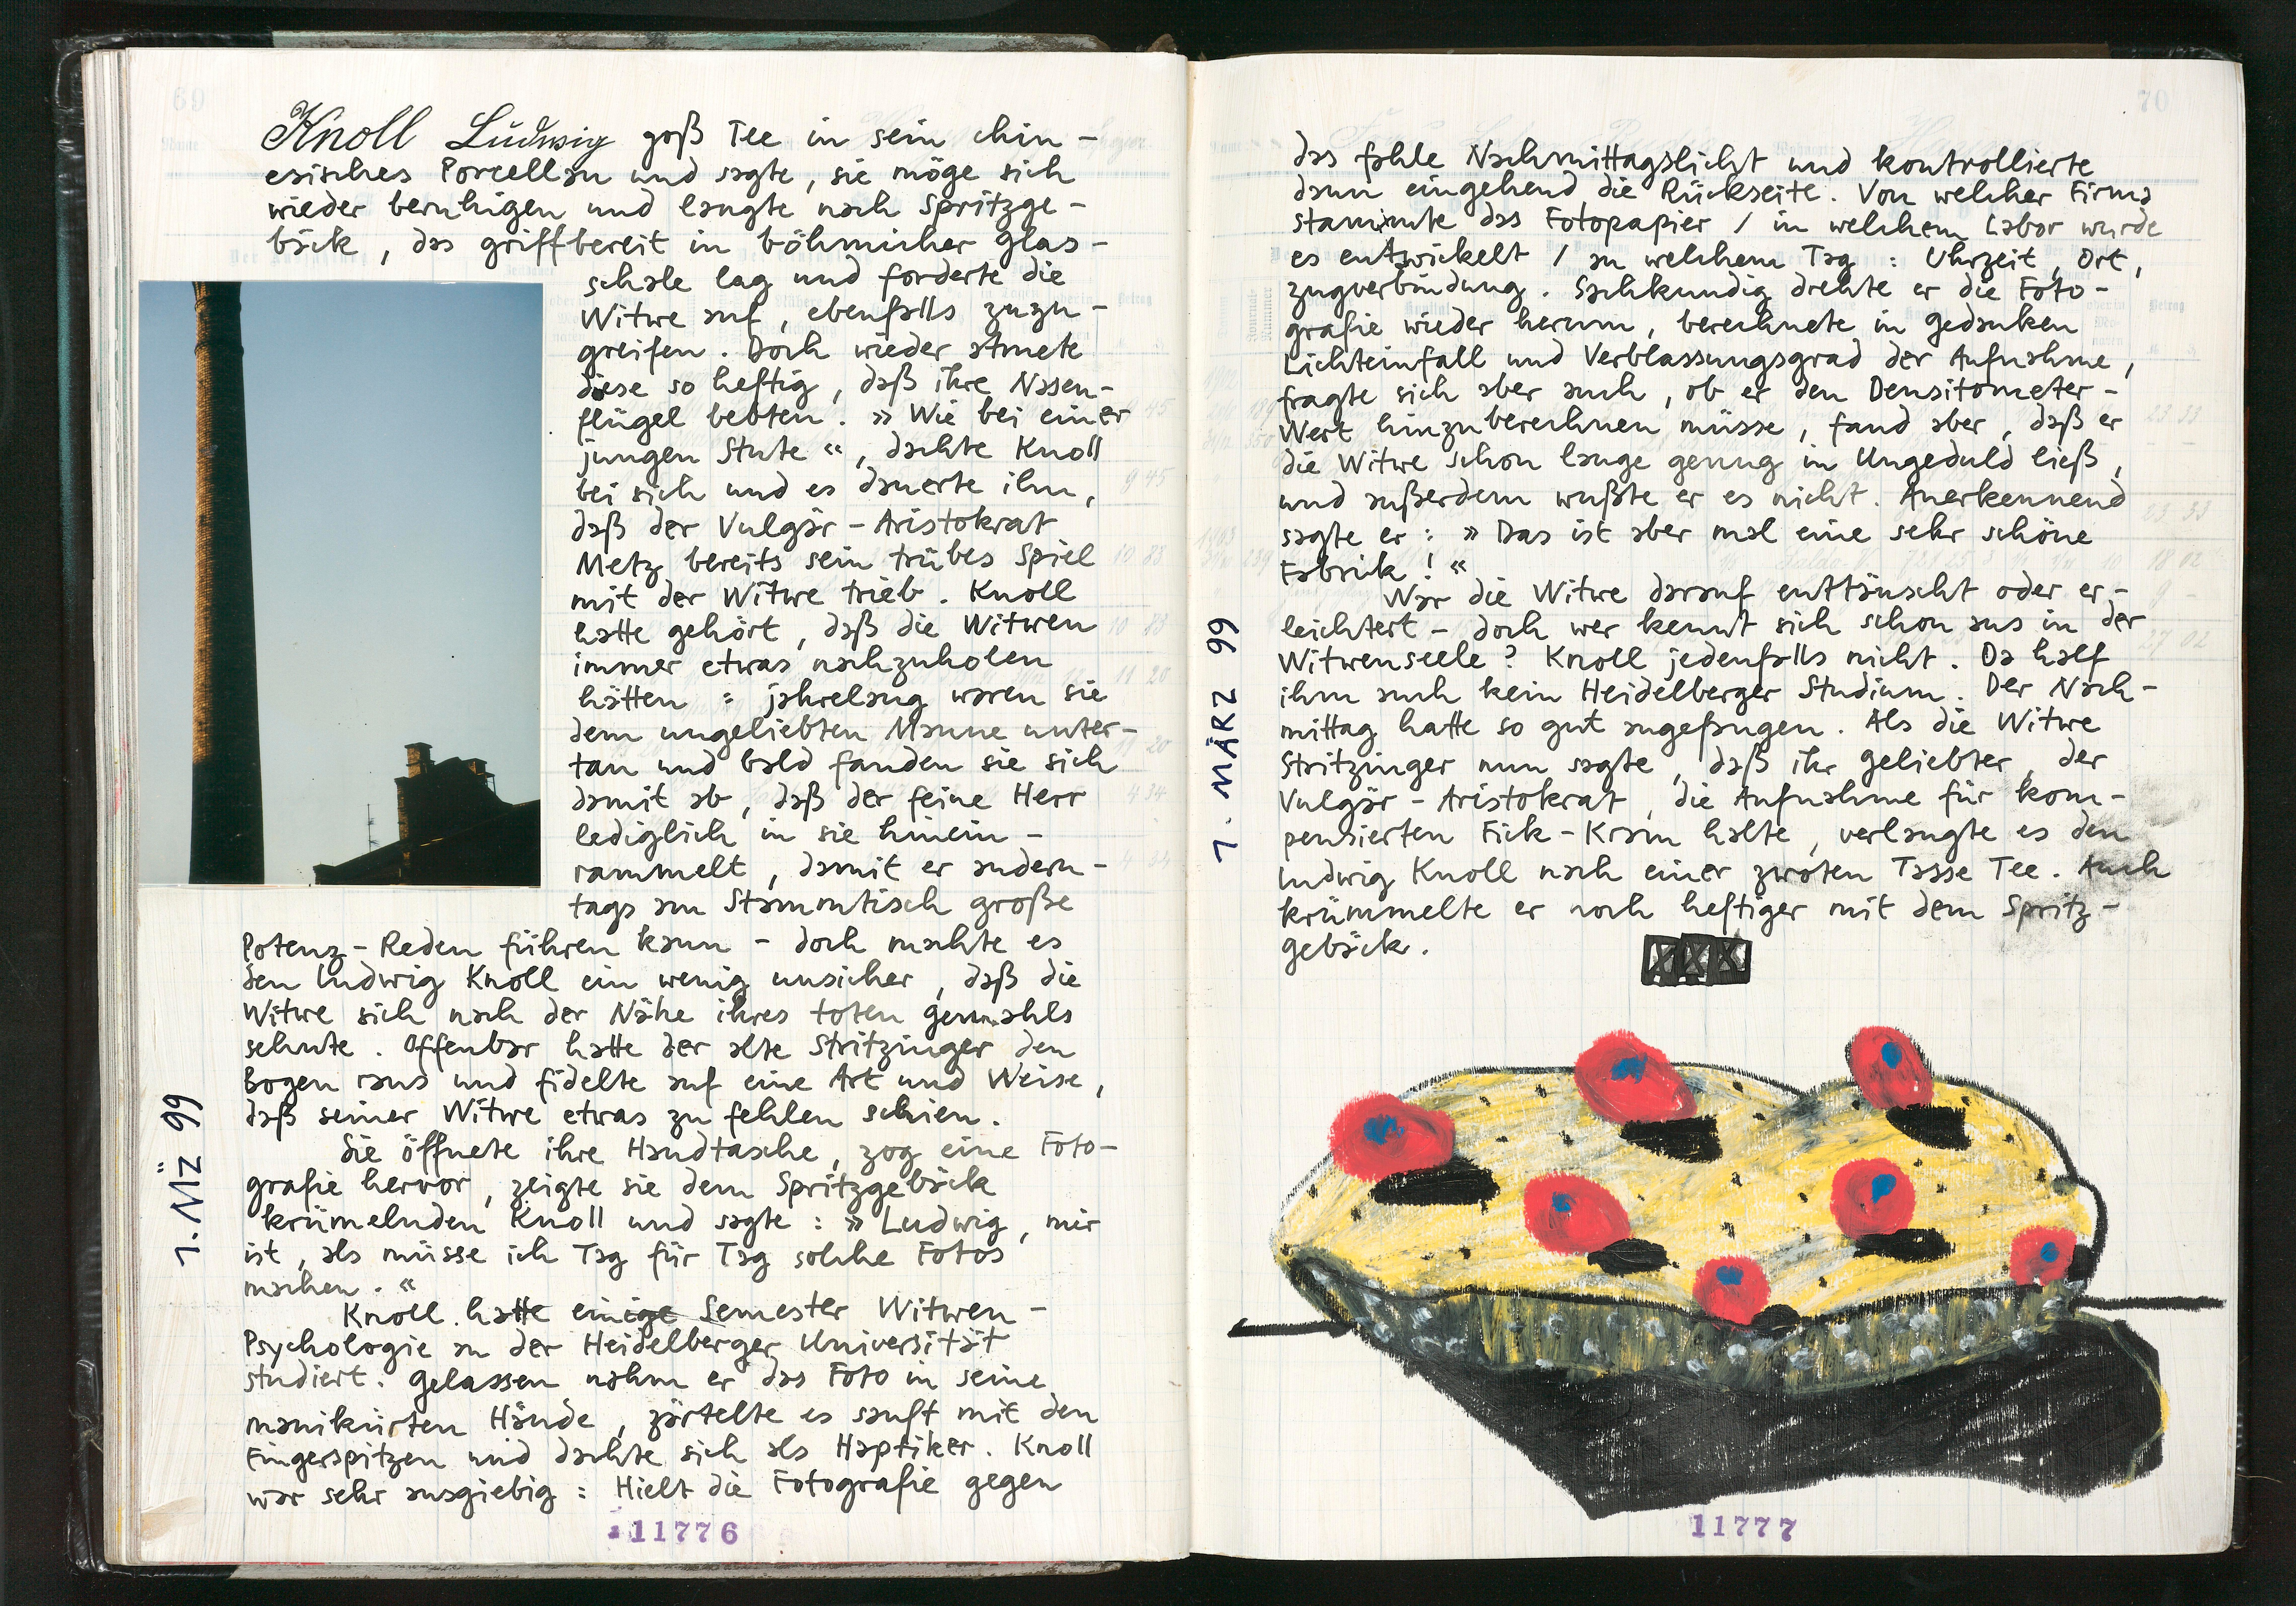 69
Knoll Ludwig goß Tee in sein chin-
esisches Porcellan und sagte, sie möge sich
wieder beruhigen und langte nach Spritzge-
bäck, das griffbereit in böhmicher Glas-
schale lag und forderte die
Witwe auf, ebenfalls zuzu-
greifen. Doch wieder atmete
diese so heftig, daß ihre Nasen-
flügel bebten. » Wie bei einer
jungen Stute «, dachte Knoll
bei sich und es dauerte ihm,
daß der Vulgär-Aristokrat
Metz bereits sein trübes Spiel
mit der Witwe trieb. Knoll
hatte gehört, daß die Witwen
immer etwas nachzuholen
hätten : jahrelang waren sie
dem ungeliebten Manne unter-
tan und bald fanden sie sich
damit ab, daß der feine Herr
lediglich in sie hinein-
rammelt, damit er andern-
tags am Stammtisch große
Potenz-Reden führen kann - doch machte es
den Ludwig Knoll ein wenig unsicher, daß die
Witwe sich nach der Nähe ihres toten Gemahls
sehnte. Offenbar hatte der alte Stritzinger den
Bogen raus und fidelte auf eine Art und Weise,
daß seiner Witwe etwas zu fehlen schien.
Sie öffnete ihre Handtasche, zog eine Foto-
grafie hervor, zeigte sie dem Spritzgebäck
krümelnden Knoll und sagte : » Ludwig, mir
ist, als müsse ich Tag für Tag solche Fotos
machen. «
Knoll hatte einige Semester Witwen-
Psychologie an der Heidelberger Universität
studiert. Gelassen nahm er das Foto in seine
manikürten Hände, zärtelte es sanft mit den
Fingerspitzen und dachte sich als Haptiker. Knoll
war sehr ausgiebig : Hielt die Fotografie gegen
1. MÄZ 99
11776
70
das fahle Nachmittagslicht und kontrollierte
dann eingehend die Rückseite. Von welcher Firma
stammte das Fotopapier / in welchem Labor wurde
es entwickelt / an welchem Tag : Uhrzeit, Ort,
Zugverbindung. Sachkundig drehte er die Foto-
grafie wieder herum, berechnete in Gedanken
Lichteinfall und Verblassungsgrad der Aufnahme,
fragte sich aber auch, ob er den Densitometer-
Wert hinzuberechnen müsse, fand aber, daß er
die Witwe schon lange genug in Ungeduld ließ,
und außerdem wußte er es nicht. Anerkennend
sagte er : » Das ist aber mal eine sehr schöne
Fabrik ! «
War die Witwe darauf enttäuscht oder er-
leichtert - doch wer kennt sich schon aus in der
Witwenseele ? Knoll jedenfalls nicht. Da half
ihm auch kein Heidelberger Studium. Der Nach-
mittag hatte so gut angefangen. Als die Witwe
Stritzinger nun sagte, daß ihr Geliebter, der
Vulgär-Aristokrat, die Aufnahme für kom-
pensierten Fick-Kram halte, verlangte es den
Ludwig Knoll nach einer zwoten Tasse Tee. Auch
krümmelte er noch heftiger mit dem Spritz-
gebäck.
XXX
1. MÄRZ 99
11777